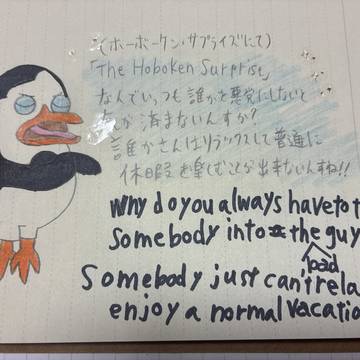 (ホーボーケン・サプライズにて)
「The Hoboken Surprise」
なんでいっつも誰かを悪党にしないと
気が済まないんすか?
誰かさんはリラックスして普通に
休暇を楽しむことが出来ないんすね!!
Why do you always have to t
Somebody into the guy
bad
Somebody just can't rela
enjoy a normal vacatio